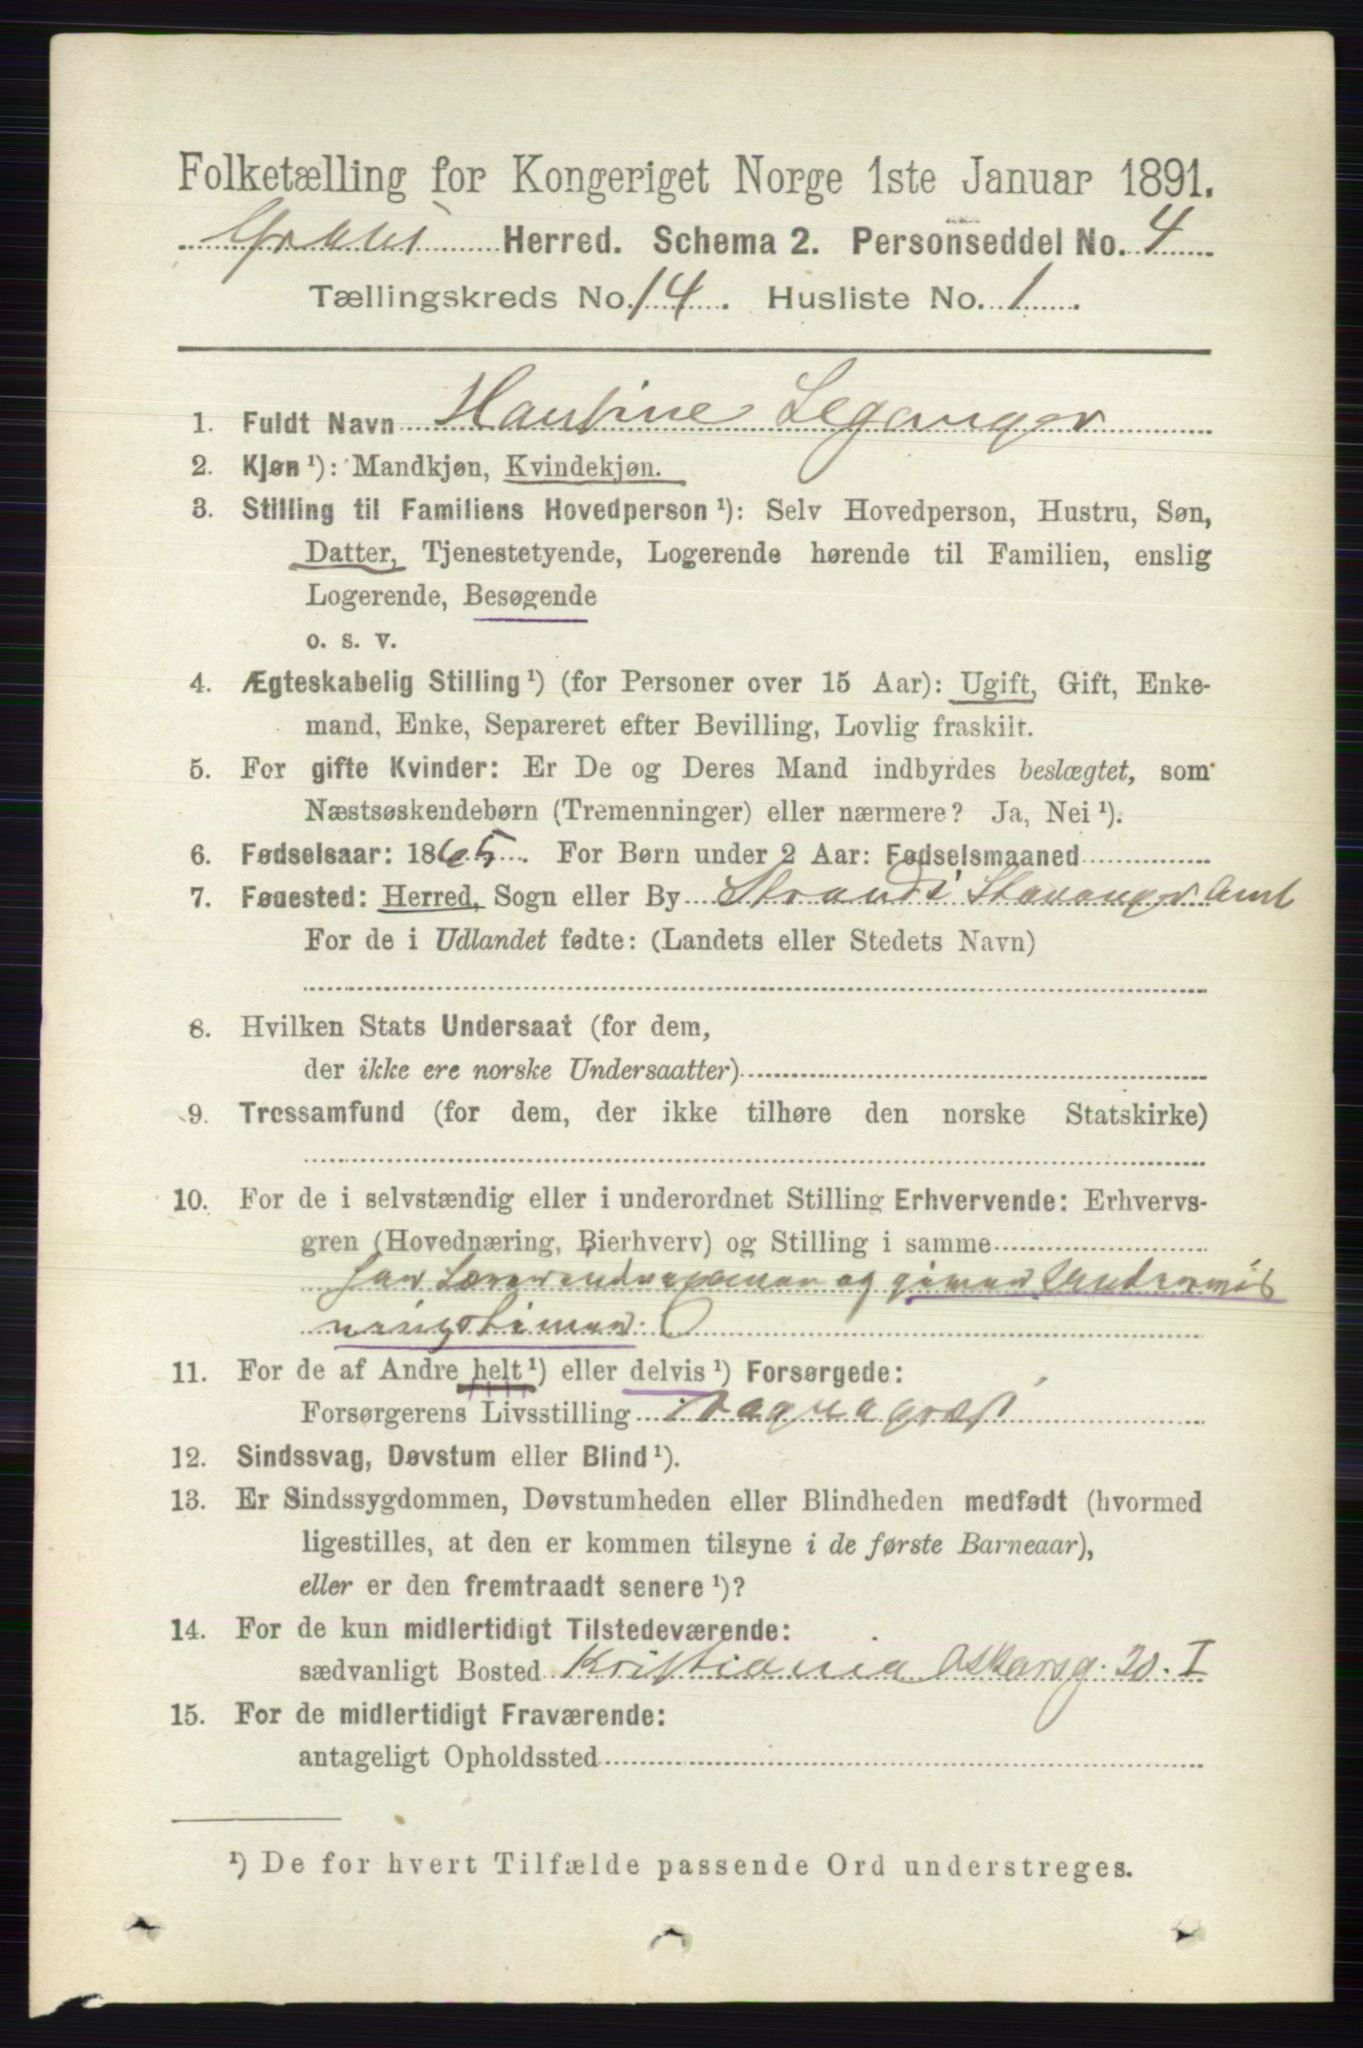 Folketælling for Kongeriget Norge 1ste Januar 1891.
Grans Herred. Schema 2. Personseddel No. 4
Tællingskreds No. 14. Husliste No. 1.
1. Fuldt Navn Hansine Leganger
2. Kjøn ¹): Mandkjøn, Kvindekjøn.
3. Stilling til Familiens Hovedperson ¹): Selv Hovedperson, Hustru, Søn,
Datter, Tjenestetyende, Logerende hørende til Familien, enslig
Logerende, Besøgende
o. s. v.
4. Ægteskabelig Stilling ¹) (for Personer over 15 Aar): Ugift, Gift, Enke-
mand, Enke, Separeret efter Bevilling, Lovlig fraskilt.
5. For gifte Kvinder: Er De og Deres Mand indbyrdes beslægtet, som
Næstsøskendebørn (Tremenninger) eller nærmere? Ja, Nei ¹).
6. Fødselsaar: 1865. For Børn under 2 Aar: Fødselsmaaned
7. Fødested: Herred, Sogn eller By Strand i Stavanger Amt
For de i Udlandet fødte: (Landets eller Stedets Navn)
8. Hvilken Stats Undersaat (for dem,
der ikke ere norske Undersaatter)
9. Trossamfund (for dem, der ikke tilhøre den norske Statskirke)
10. For de i selvstændig eller i underordnet Stilling Erhvervende: Erhvervs-
gren (Hovednæring, Bierhverv) og Stilling i samme
har og giver Undervis
ningstimer.
11. For de af Andre helt ¹) eller delvis ¹) Forsørgede:
Forsørgerens Livsstilling Sognepræst
12. Sindssvag, Døvstum eller Blind ¹).
13. Er Sindssygdommen, Døvstumheden eller Blindheden medfødt (hvormed
ligestilles, at den er kommen tilsyne i de første Barneaar),
eller er den fremtraadt senere ¹)?
14. For de kun midlertidigt Tilstedeværende:
sædvanligt Bosted Kristiania Oskarsg. 20. I
15. For de midlertidigt Fraværende:
antageligt Opholdssted
¹) De for hvert Tilfælde passende Ord understreges.